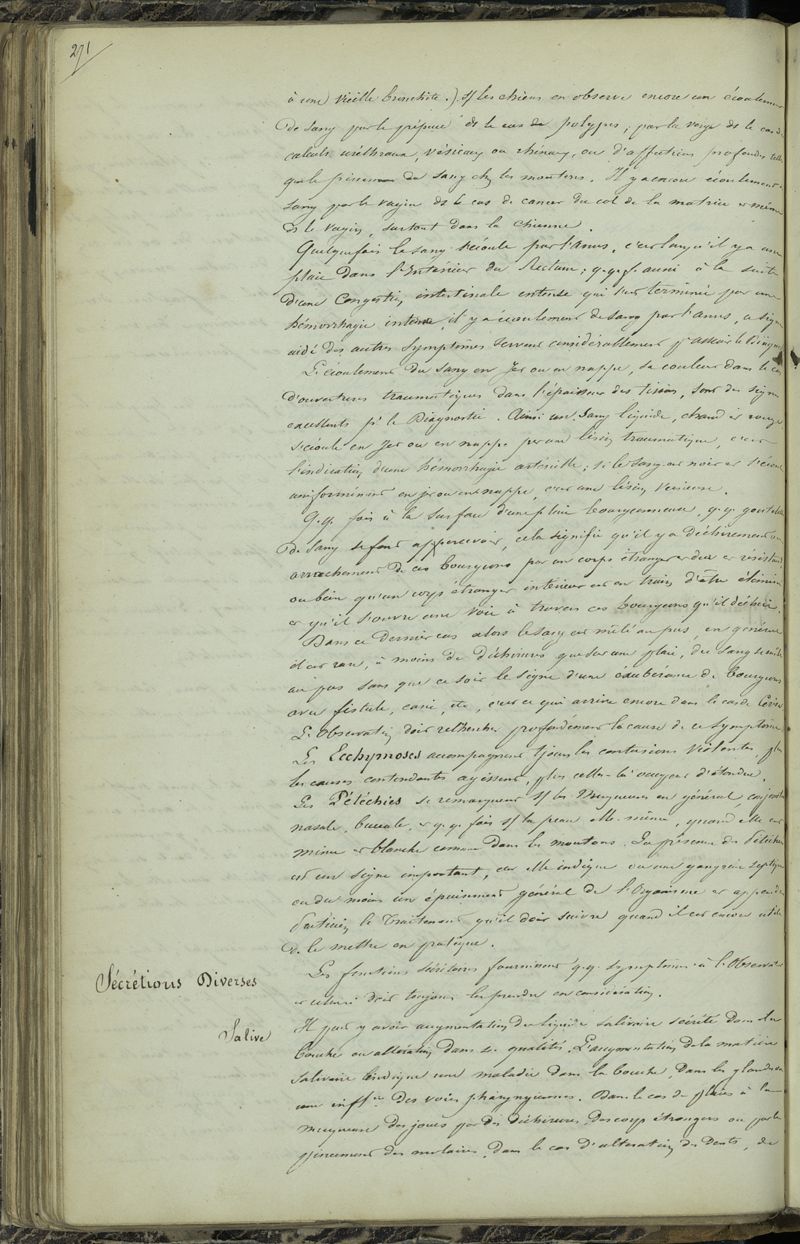 291
à une vieille bronchite.) Sf les chiens on observe encore un écoulement
de sang par le prépuce ds le cas de polypes, par la verge ds le cas de
calculs uréthraux, vésicaux ou rénaux, ou d'affections profondes telles
que le pissement de sang chez les moutons. Il y a encore écoulement de
sang par le vagin ds le cas de cancer du col de la matrice et même
ds le vagin, surtout dans la chienne.
Quelquefois le sang s'écoule par l'anus, c'est lorsqu'il y a une
plaie dans l'Intérieur du Rectum; q.q.f. aussi à la suite
d'une Congestion intestinale intense qui s'est terminée par une
hémorrhagie intense, il y a écoulement de sang par l'anus, ce signe
aidé des autres symptômes servent considérablement pr asseoir le Diagnostic
L'écoulement du sang en jet ou en nappe, sa couleur dans le cas
d'ouvertures traumatiques dans l'épaisseur des tissus, sont des signes
excellents pr le Diagnostic. Ainsi un sang liquide, chaud et rouge
s'écoule en jet ou en nappe par une lésion traumatique, c'est
l'indication d'une hémorrhagie artérielle; si le sang est noir et s'écoule
uniformément en jet ou en nappe, c'est une lésion veineuse.
Q.q. fois à la surface d'une plaie bourgeonneuse, q.q. gouttelettes
de sang se font appercevoir, cela signifie qu'il y a déchirement ou
arrachement de ces bourgeons par un corps étranger dur et résistant
ou bien qu'un corps étranger intérieur est en train d'être éliminé
et qu'il s'ouvre une voie à travers ces bourgeons qu'il déchire.
Dans ce dernier cas alors le sang est mêlé au pus, en général
il est rare, à moins de déchirures que sur une plaie, du sang se mêle
au pus sans que ce soit le signe d'une exubérance de bourgeons
avec fistule, carie, etc, c'est ce qui arrive encore dans le cas de
L'Observation doit rechercher profondément la cause de ce symptôme
Les Ecchymoses accompagnent tjours les contusions violentes, plus
les causes contondantes agissent, plus celles-là occupent d'étendue.
Les Pétéchies se remarquent sf les Muqueuses en général conjonctive
nasale, buccale, et q.q. fois sf la peau elle-même, quand elle est
mince et blanche comme dans les moutons. La présence des Pétéchies
est un signe important, car elle indique ou une gangrène septique
ou du moins un épuisement général de l'Organisme et apprend au
Praticien le Traitement qu'il doit suivre quand il est encore utile
de le mettre en pratique.
Sécrétions Diverses
Les fonctions sécrétoires fournissent q.q. symptômes à l'Observateur
et celui-ci doit toujours les prendre en considération.
Salive
Il peut y avoir augmentation du liquide salivaire sécrété dans la
bouche ou altération dans ses qualités. L'augmentation de la matière
salivaire indique une maladie dans la bouche, dans les glandes ou
une inffon des voies pharyngiennes. Dans le cas de plaies à la
muqueuse des joues par des déchirures, des corps étrangers ou par le
pincement des molaires, dans le cas d'altération des Dents, de